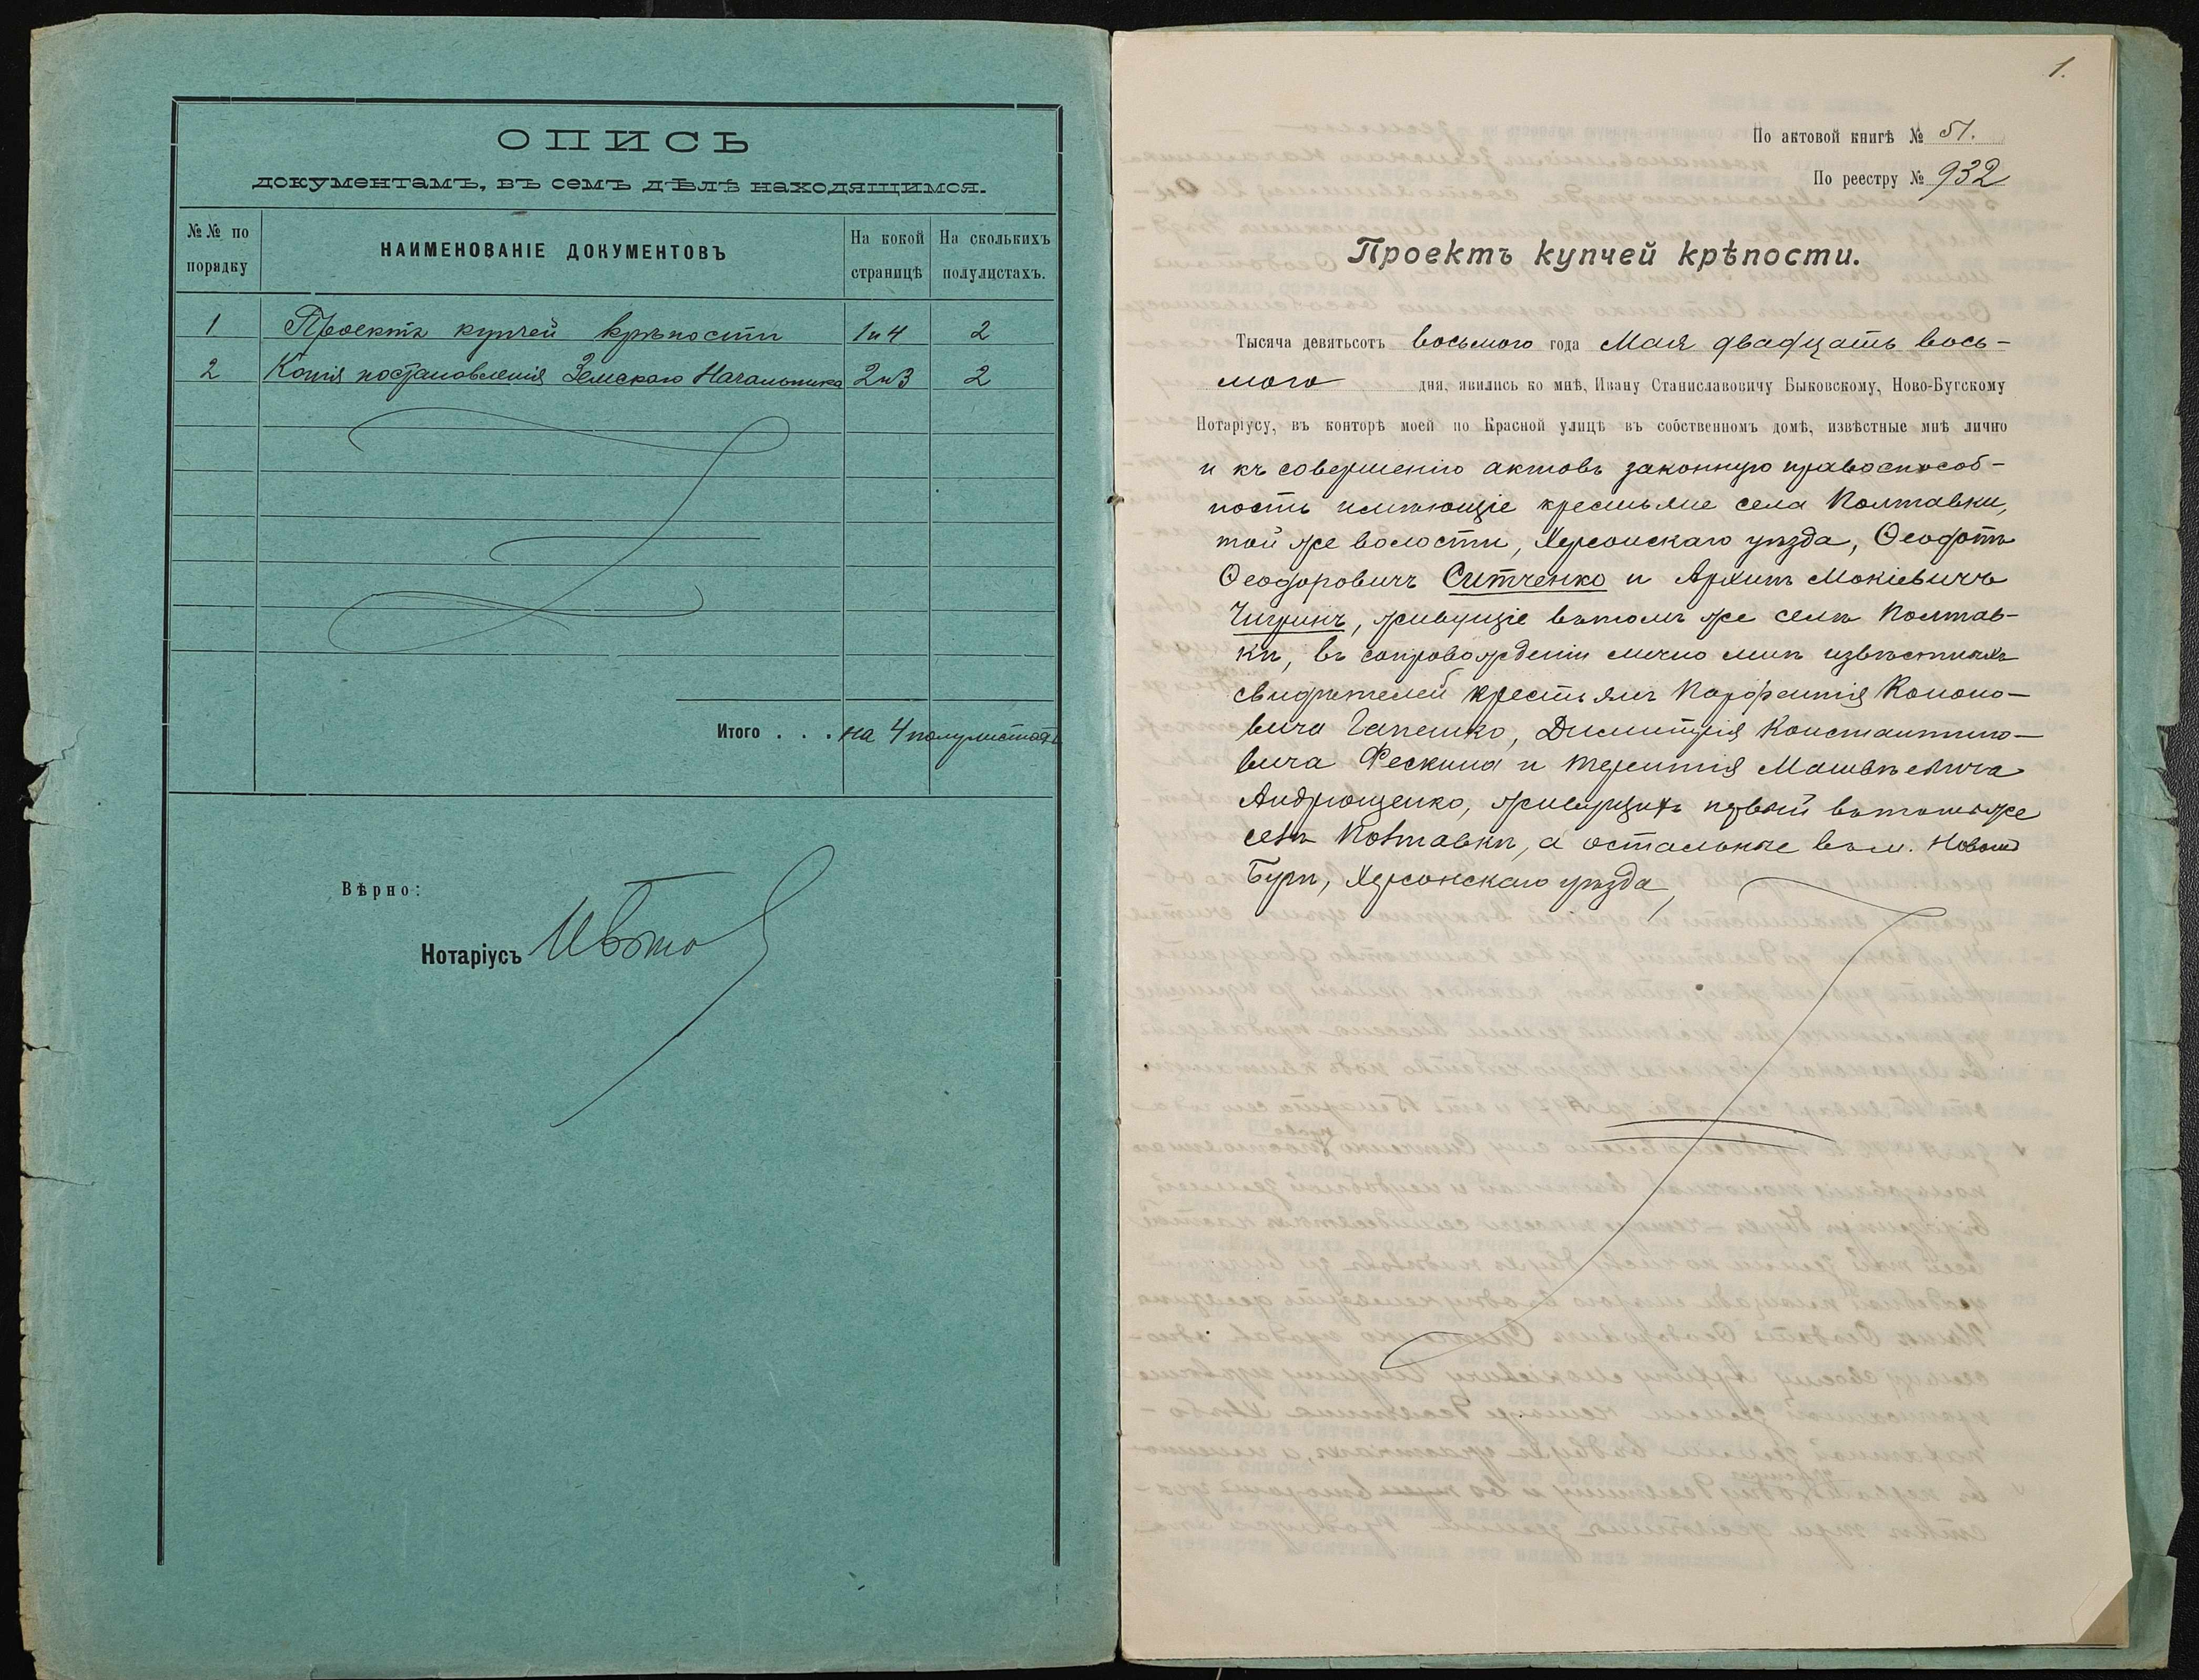 ОПИСЬ
документамъ, въ семъ дѣлѣ находящимся.
№№ по порядку
НАИМЕНОВАНІЕ ДОКУМЕНТОВЪ
На кокой страницѣ
На сколькихъ полулистахъ.
1 Проектъ купчей крѣпости 1и4 2
2 Копія постановленія Земскаго Начальника 2и3 2
Итого . . . на 4 полулистахъ
Вѣрно:
Нотаріусъ
1.
По актовой книгѣ № 51.
По реестру № 932
Проектъ купчей крѣпости.
Тысяча девятьсотъ восьмого года Мая двадцать вось-
мого дня, явились ко мнѣ, Ивану Станиславовичу Быковскому, Ново-Бугскому
Нотаріусу, въ конторѣ моей по Красной улицѣ въ собственномъ домѣ, извѣстные мнѣ лично
и къ совершенію актовъ законную правоспособ-
ность имѣющіе крестьяне села Полтавки,
той же волости, Херсонскаго уѣзда, Ѳеодотъ
Ѳеодоровичъ Ситченко и Архипъ Мокіевичъ
Чигринъ, живущіе въ томъ же селѣ Полтав-
кѣ, въ сопровожденіи лично мнѣ извѣстныхъ
свидѣтелей крестьянъ Парфентія Кононо-
вича Гапенко, Димитрія Константино-
вича Фескина и Терентія Матвѣевича
Андрющенко, живущихъ первый въ томъ же
селѣ Полтавкѣ, а остальные въ м. Новомъ
Бугѣ, Херсонскаго уѣзда,